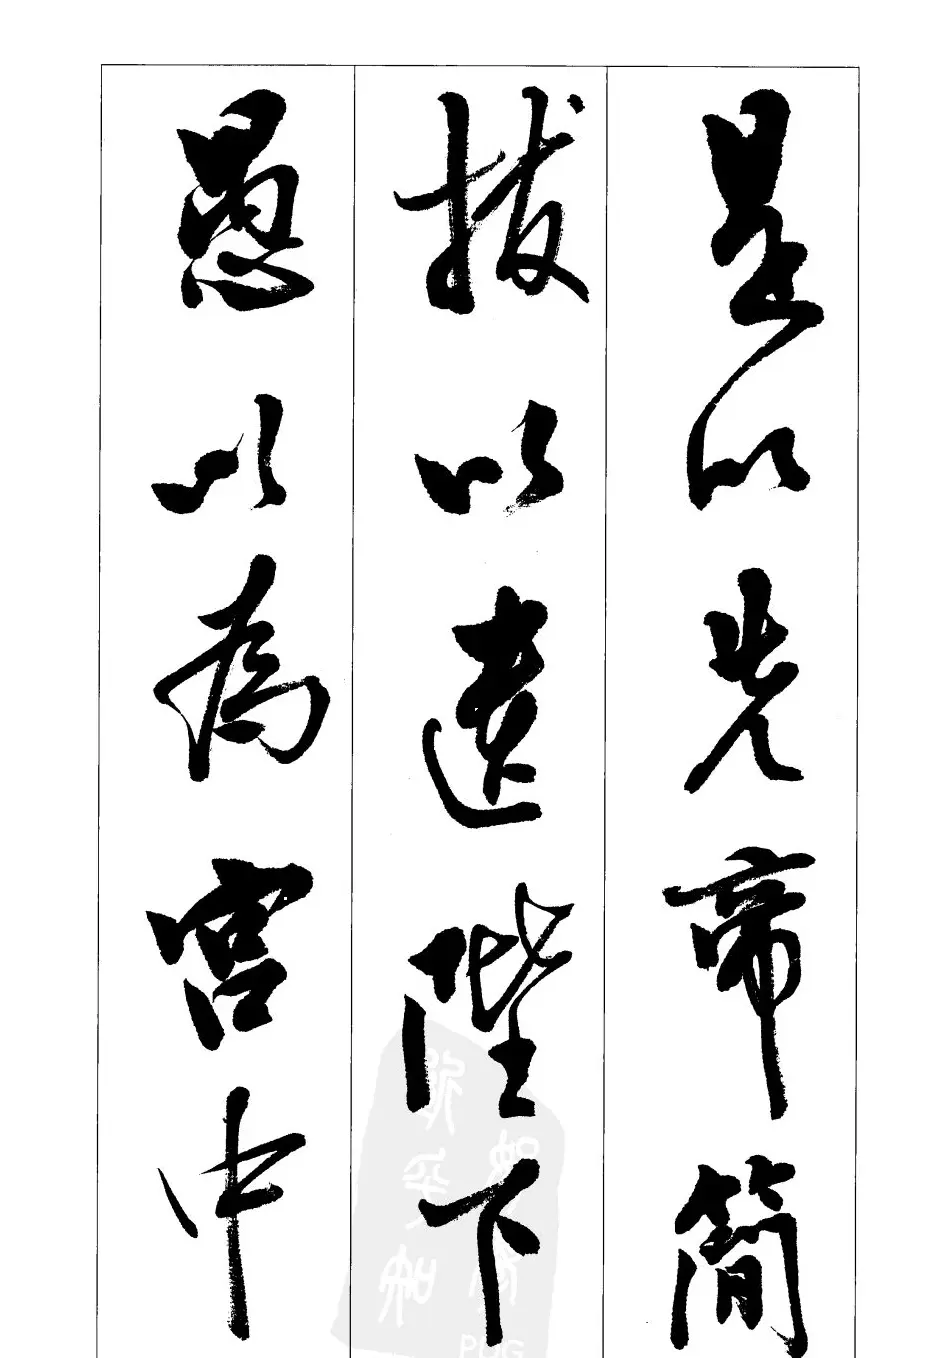 是以先帝簡
拔以遺陛下
愚以為宮中
PDG